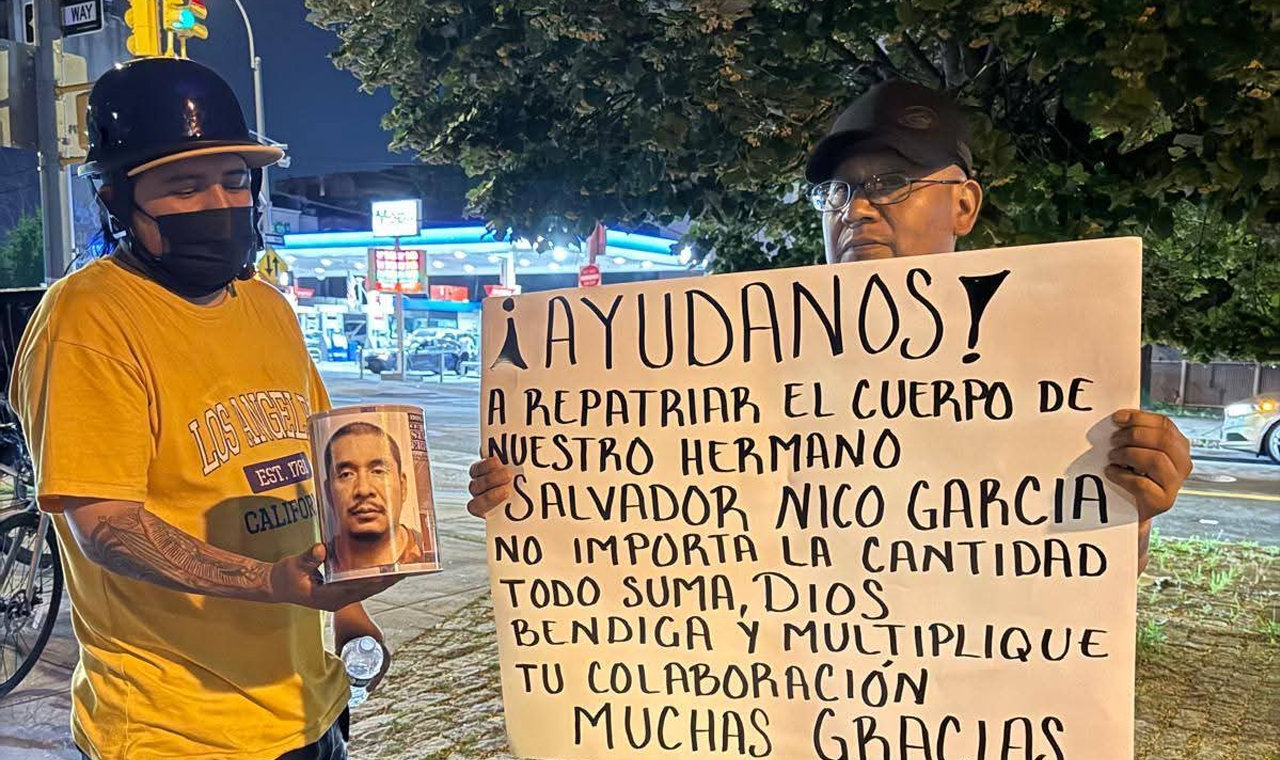 WAY
LOS ANGELES
EST. 178
CALIFOR
¡AYUDANOS!
A REPATRIAR EL CUERPO DE
NUESTRO HERMANO
SALVADOR NICO GARCIA
NO IMPORTA LA CANTIDAD
TODO SUMA, DIOS
BENDIGA Y MULTIPLIQUE
TU COLABORACIÓN
MUCHAS GRACIAS